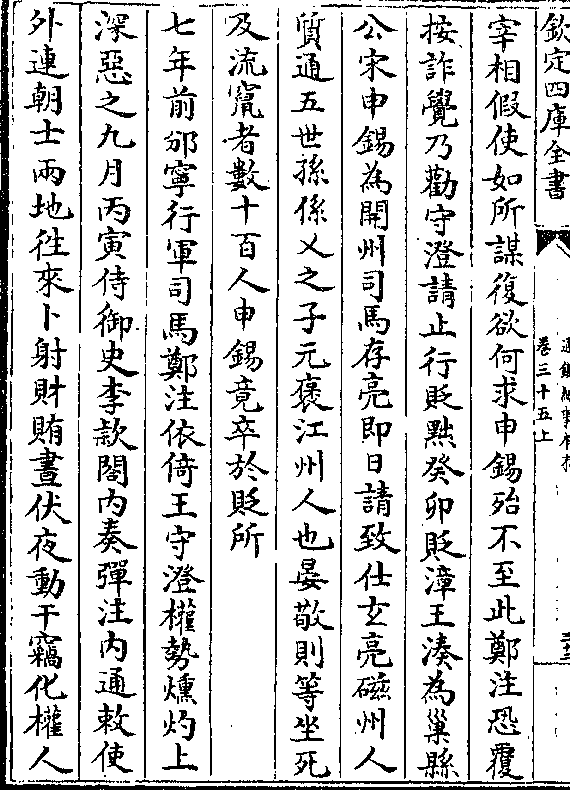 欽定四庫全書
通鑑紀事本末
卷三十五上
宰相假使如所謀復欲何求申錫殆不至此鄭注恐覆
按詐覺乃勸守澄請止行貶黜癸卯貶漳王湊為巢縣
公宋申錫為開州司馬存亮即日請致仕玄亮磁州人
質通五世孫係乂之子元褒江州人也晏敬則等坐死
及流竄者數十百人申錫竟卒於貶所
七年前邠寧行軍司馬鄭注依倚王守澄權勢燻灼上
深惡之九月丙寅侍御史李款閤內奏彈注內通敕使
外連朝士兩地徃來卜射財賄晝伏夜動干竊化權人